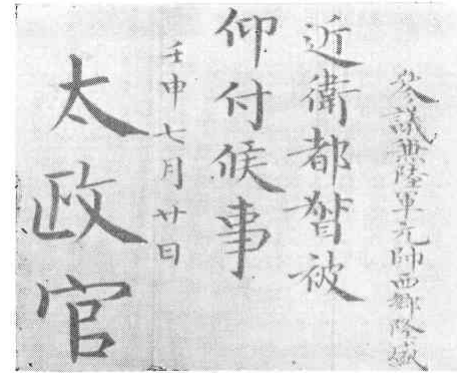 参議兼陸軍元帥西郷隆盛
近衛都督被
仰付候事
壬申七月廿日
太政官